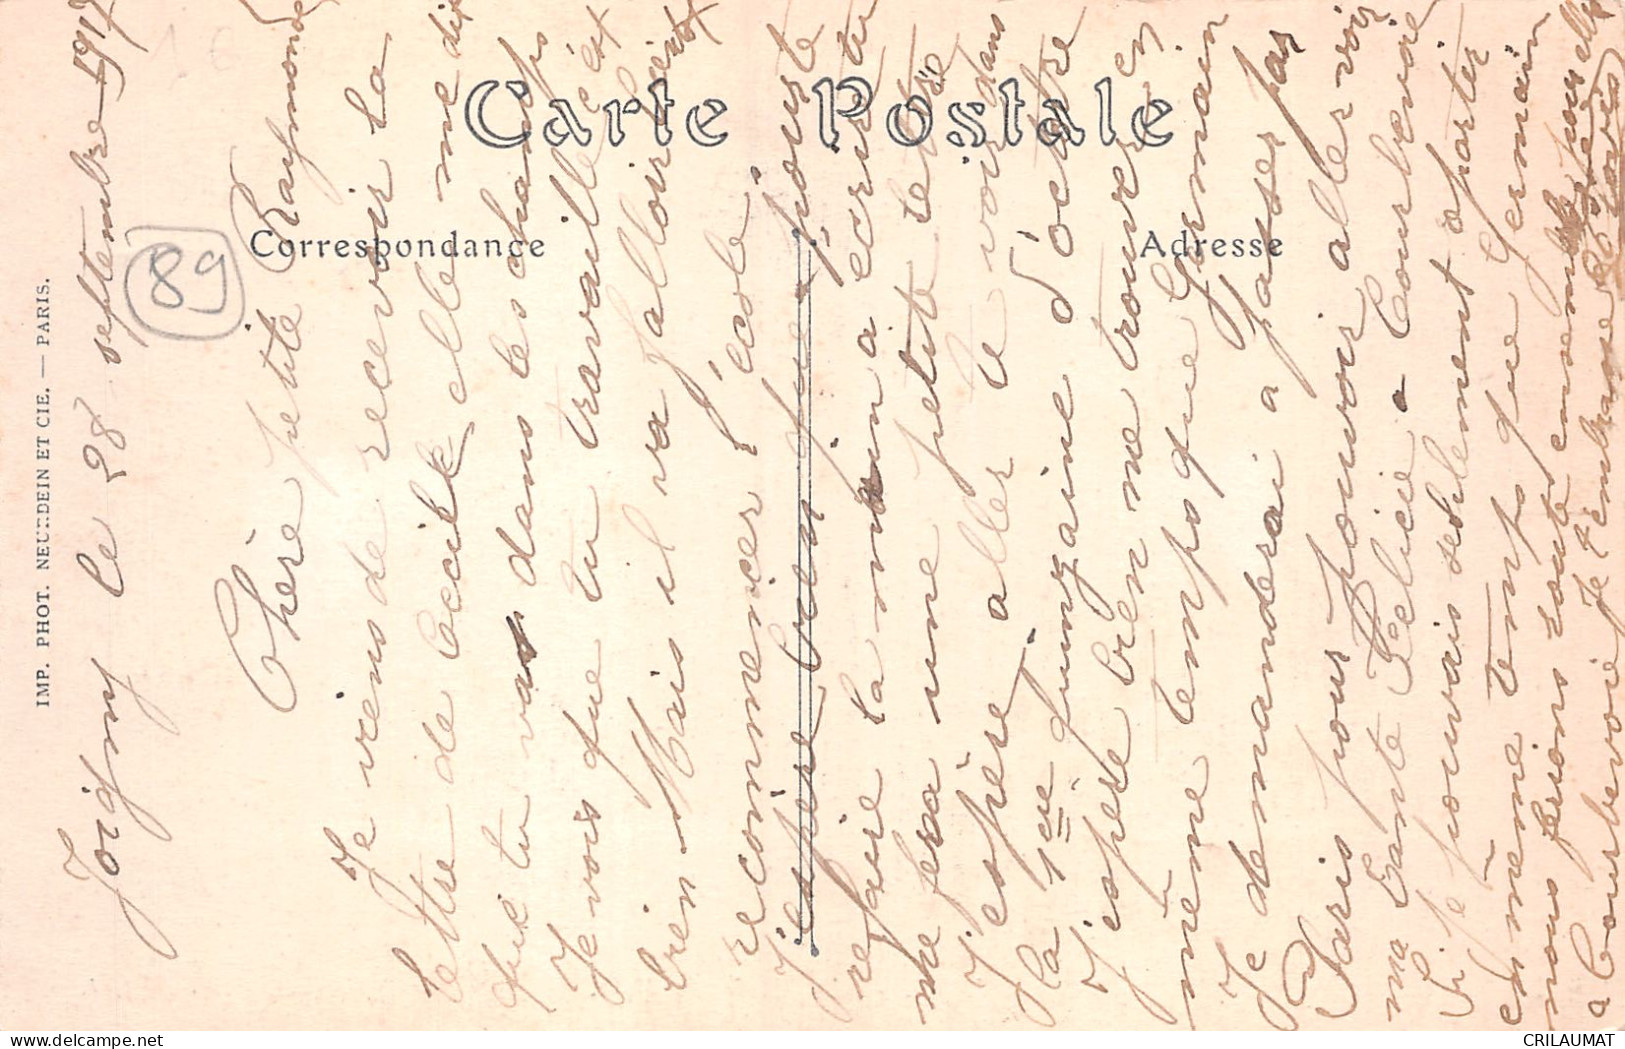 Carte Postale
Correspondance
Adresse
IMP. PHOT. NEURDEIN ET CIE. — PARIS.
89
Joigny le 28 septembre 1917
Chère petite Raymonde
Je viens de recevoir la
lettre de Cecile, elle me dit
que tu vas dans les champs
Je vois que tu travaille c'est
bien Mais il va falloir bientot
recommencer l'école.
J'espere bien que
refaire la main a ecrire tu
me fera une petite lettre
J'espère aller te voir dans
la 1ere quinzaine d'octobre
J'espère bien me trouver en
même temps que Germain
Je demanderai a passer par
Paris pour pouvoir aller voir
ma tante Felicie a Courbevoie
Si je pouvais seulement partir
en meme temps que Germain
nous ferions route ensemble pour aller
a Courbevoie Je t'embrasse
CRILAUMAT